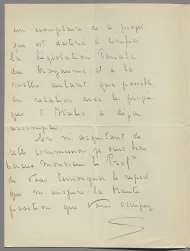 un exemplaire de ce projet
qui est destiné à
la Législation Pénale
du Royaume et à la
mettre autant que possible
en relation avec les progrès
que l'Italie a déjà
accomplis.
En m'acquittant de
cette commission je suis bien
heureux Monsieur le Profr
de Vous témoigner le respect
que m'inspire la haute
position que Vous occupez